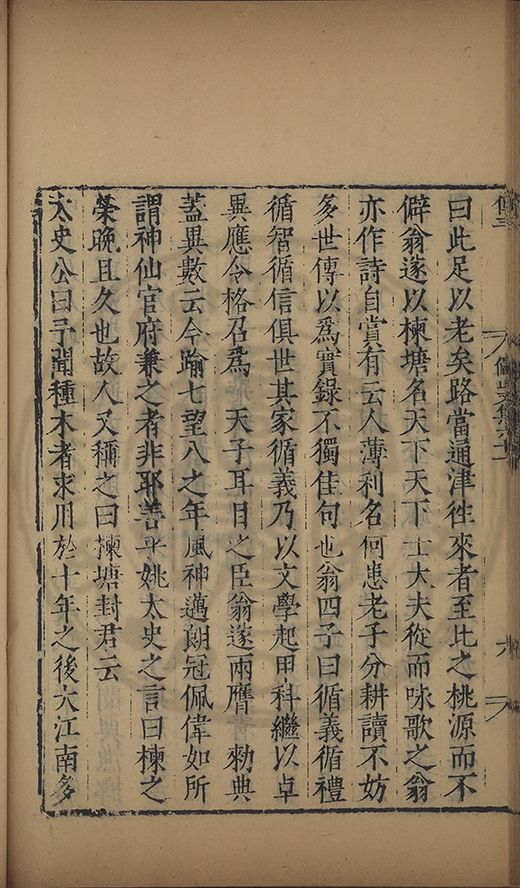 曰此足以老矣路當通津徃來者至比之桃源而不
僻翁遂以楝塘名天下天下士大夫從而咏歌之翁
亦作詩自賞有云人薄利名何患老子分耕讀不妨
多世傳以爲實錄不獨佳句也翁四子曰循義循禮
循智循信俱世其家循義乃以文學起甲科繼以卓
異應令格召爲 天子耳目之臣翁遂兩膺 勑典
蓋異數云今踰七望八之年風神邁朗冠佩偉如所
謂神仙官府兼之者非耶善乎姚太史之言曰楝之
榮晚且久也故人又稱之曰楝塘封君云
太史公曰予聞種木者求用於十年之後大江南多